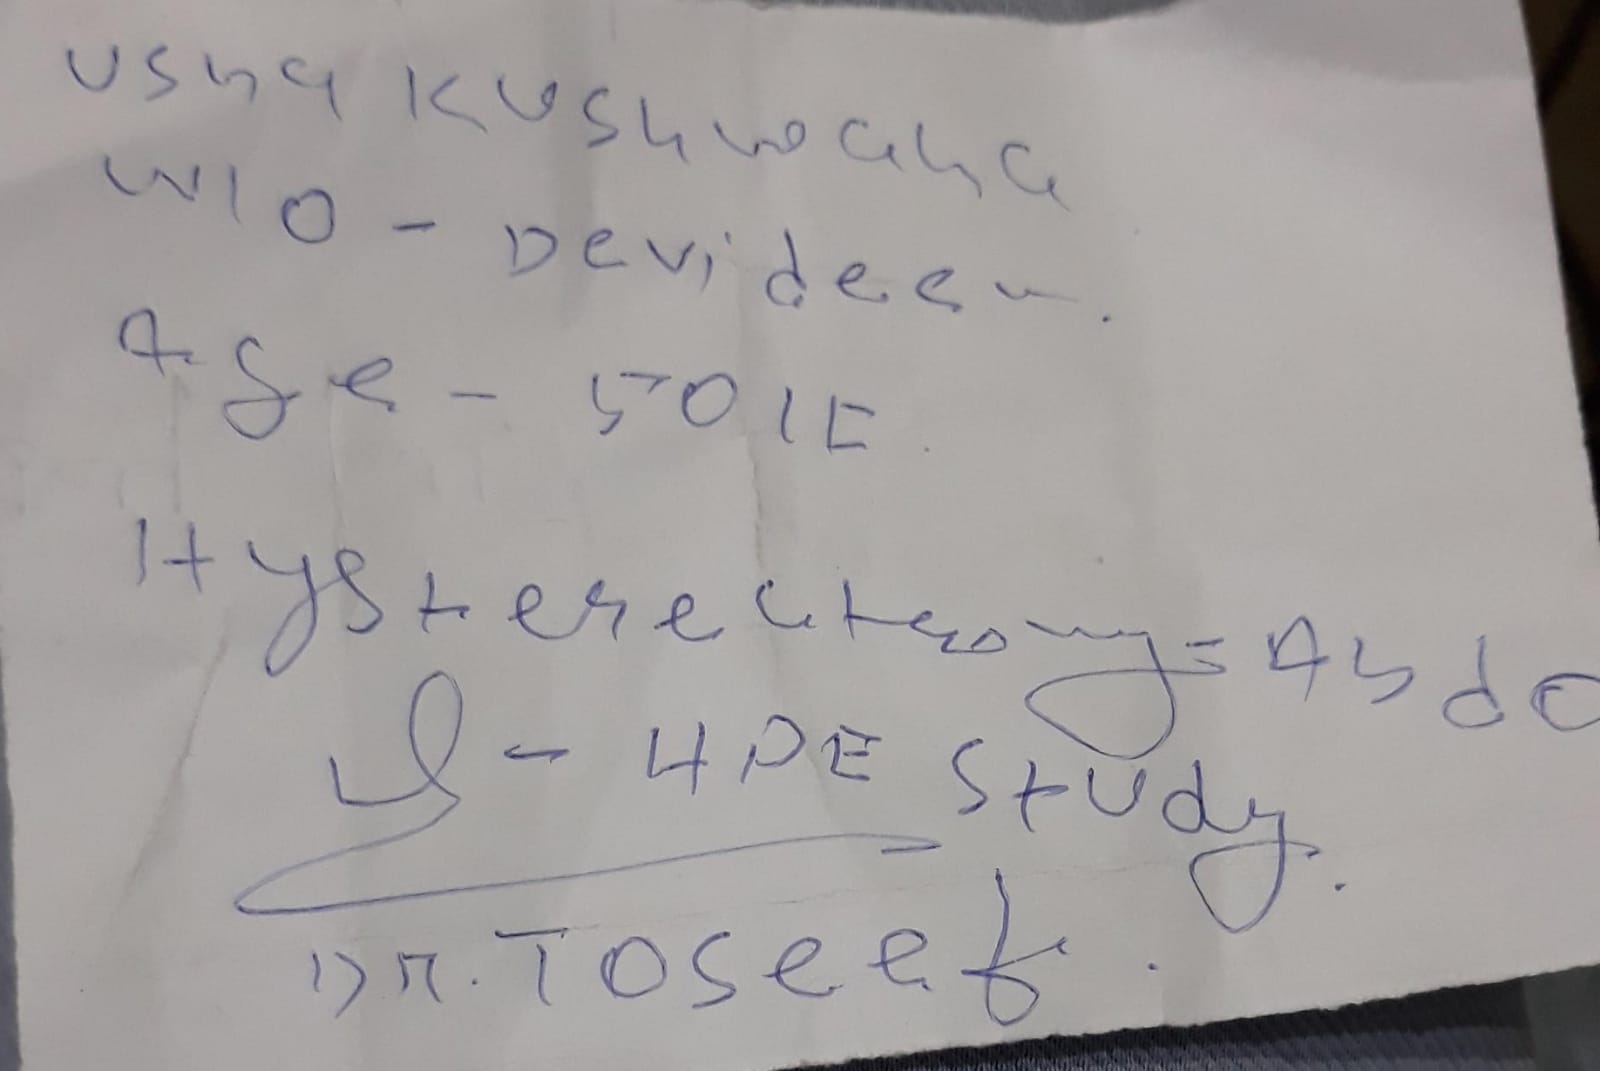 Usha Kushwaha
W/O - Devideen.
Age - 50/F.
Hysterectomy = Abdo
- HPE Study.
Dr. Toseef.